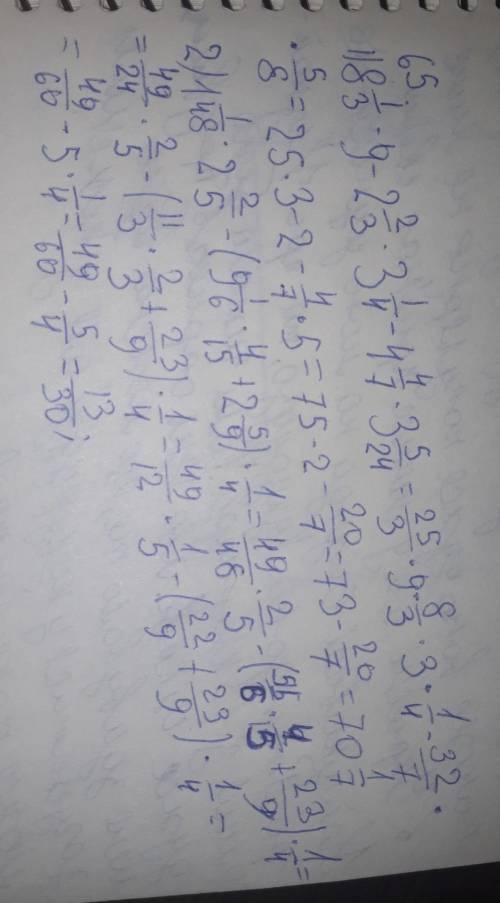 65.
1) 8 1/3 · 9 - 2 2/3 · 3 1/4 - 4 4/7 · 3 5/24 = 25/3 · 9 - 8/3 · 3 · 1/4 - 32/7 ·
· 5/8 = 25 · 3 - 2 - 4/7 · 5 = 75 - 2 - 20/7 = 73 - 20/7 = 70 1/7
2) 1 1/48 · 2 2/5 - (9 1/6 · 4/15 + 2 5/9) · 1/4 = 49/48 · 2/5 - (55/6 · 4/15 + 23/9) · 1/4 =
= 49/24 · 2/5 - (11/3 · 2/3 + 23/9) · 1/4 = 49/12 · 1/5 - (22/9 + 23/9) · 1/4 =
= 49/60 - 5 · 1/4 = 49/60 - 5/4 = 13/30;